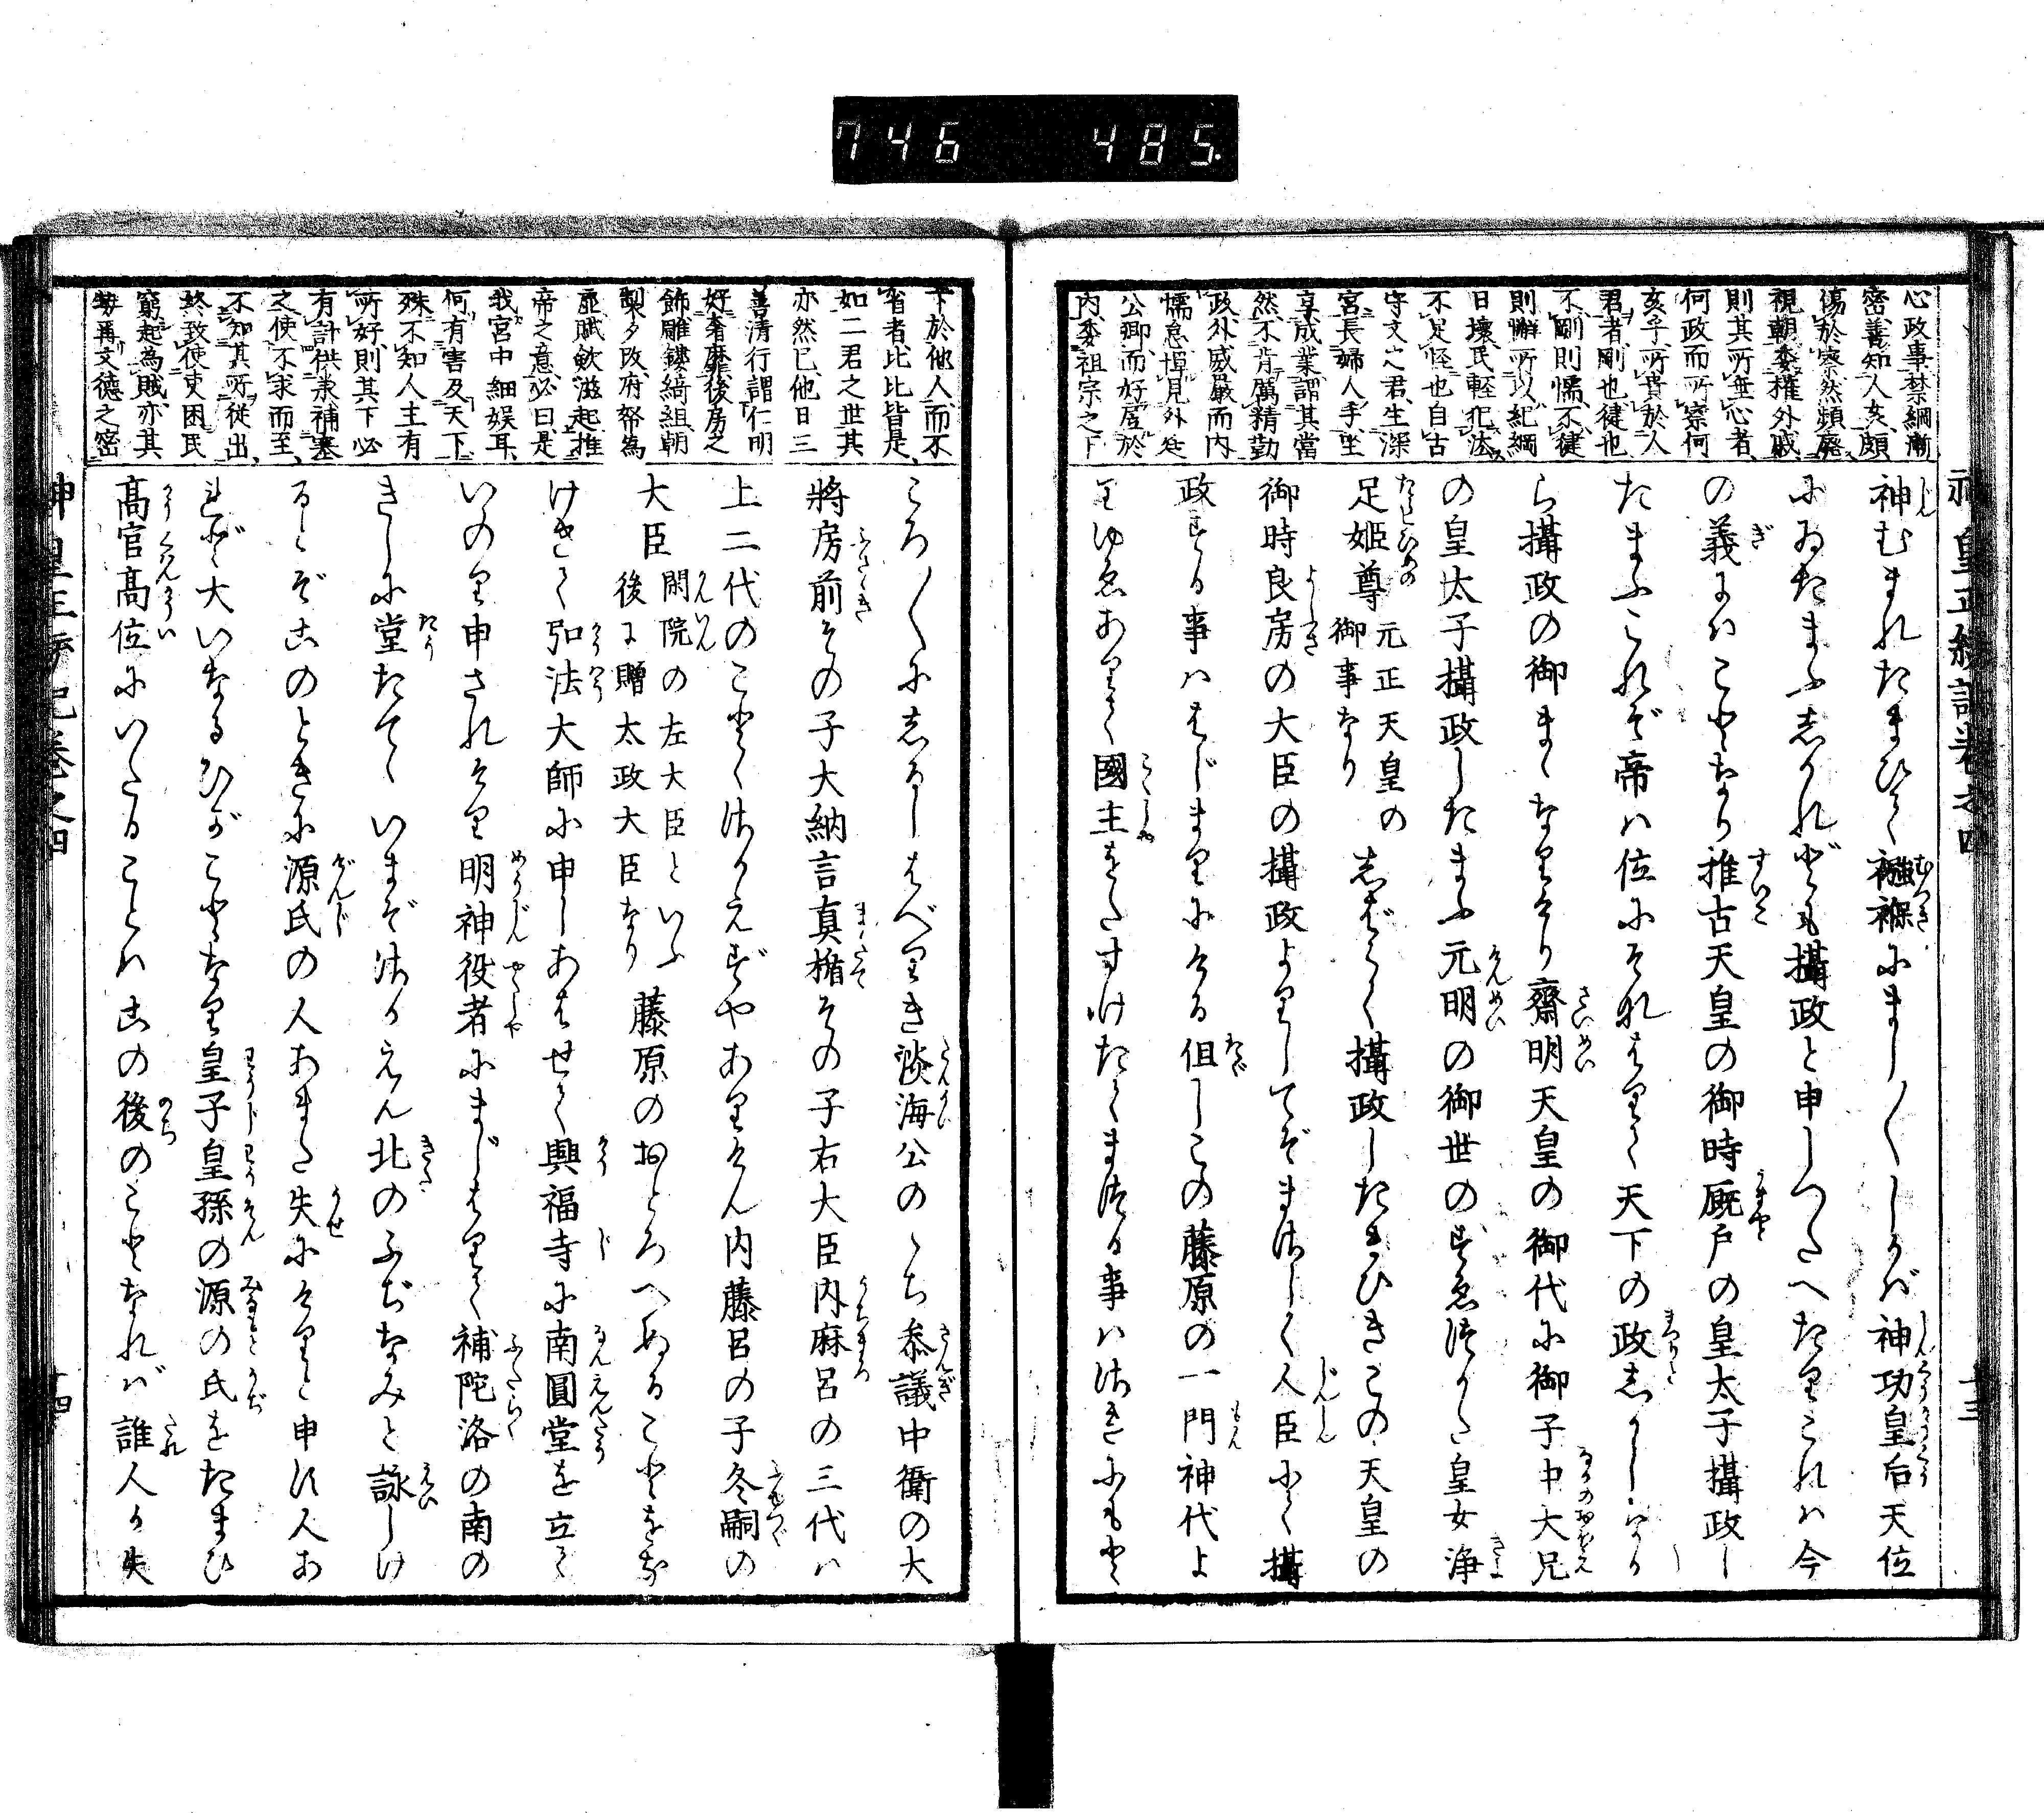 746 485.
神皇正統記巻之四
心政事禁綱漸
密善知人亥頗
傷於察然頻廢
視朝委權外戚
則其所無心者
何政而所察何
亥乎所貴於人
君者剛也健也
不剛則懦不健
則懈所以紀綱
日壊民軽犯法
不足怪也自古
守文之君生深
宮長婦人手坐
享成業謂其當
然不肯厲精勤
政外威嚴而内
懦怠憚見外廷
公卿而好居於
内委祖宗之下
神むまれたまひて襁褓にまし〱しかば神功皇后天位
にゐたまふしかれども攝政と申しつたへたりこれハ今
の義にハことなり推古天皇の御時厩戸の皇太子攝政し
たまふこれぞ帝ハ位にそなはりて天下の政しかしなか
ら攝政の御まゝなりけり齋明天皇の御代に御子中大兄
の皇太子攝政したまふ元明の御世のすゑつかた皇女浄
足姫尊元正天皇の御事なりしばらく攝政したまひきこの天皇の
御時良房の大臣の攝政よりしてぞまさしく人臣にて攝
政する事ハはじまりにける但しこの藤原の一門神代よ
りゆゑありて國主をたすけたてまつる事ハさきにもと
下於他人而不
省者比比皆是
如二君之世其
亦然已他日三
善清行謂仁明
好奢靡後房之
飾雕鏤綺組朝
製夕改府帑為
虚賦歛滋起推
帝之意必曰是
我宮中細娯耳
何有害及天下
殊不知人主有
所好則其下必
有計供承補塞
之使不求而至
不知其所従出
終致使吏困民
窮起為賊亦其
毎再文德之密
ころ〱にしるしはべりき淡海公のゝち参議中衛の大
將房前その子大納言真楯その子右大臣内麻呂の三代ハ
上二代のことくさかえずやありけん内藤呂の子冬嗣の
大臣閑院の左大臣といふ後に贈太政大臣なり藤原のおとろへぬることをな
けきて弘法大師に申しあはせて興福寺に南圓堂を立て
いのり申されけり明神役者にまじはりて補陀洛の南の
きしに堂たてゝいまぞさかえん北のふぢなみと詠しけ
るとぞこのときに源氏の人あまた失にけりと申す人あ
れど大いなるひがことなり皇子皇孫の源の氏をたまひ
高官高位にいたることハこの後のことなれば誰人か失
神皇正統記巻之四
十四